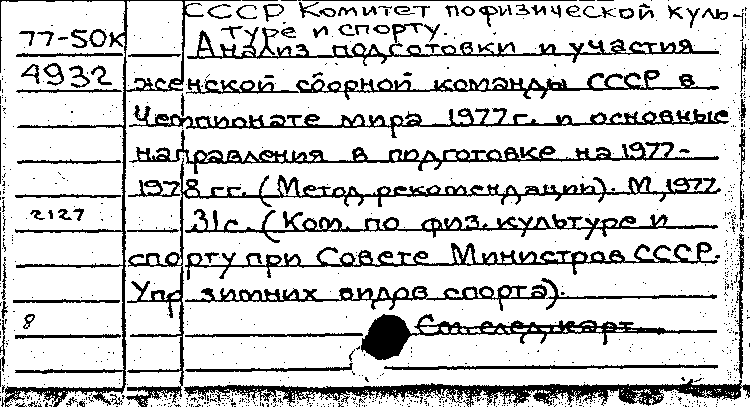 СССР Комитет по физической куль-
туре и спорту.
77-50к Анализ подготовки и участия
4932 женской сборной команды СССР в
Чемпионате мира 1977 г. и основные
направления в подготовке на 1977-
1978 гг. (Метод. рекомендации). М, 1977.
2127 31с. (Ком. по физ. культуре и
спорту при Совете Министров СССР.
Упр зимних видов спорта).
8 См. след. карт.